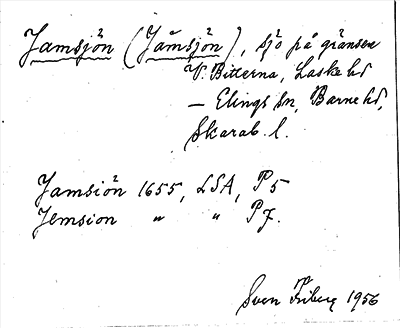 Jamsjön (Jämsjön), sjö på gränsen
V. Bitterna, Laske hd
– Elings sn, Barne hd,
Skarab. l.
Jamsiön 1655, LSA, P5
Jemsion " " P7.
Sven Friberg 1956